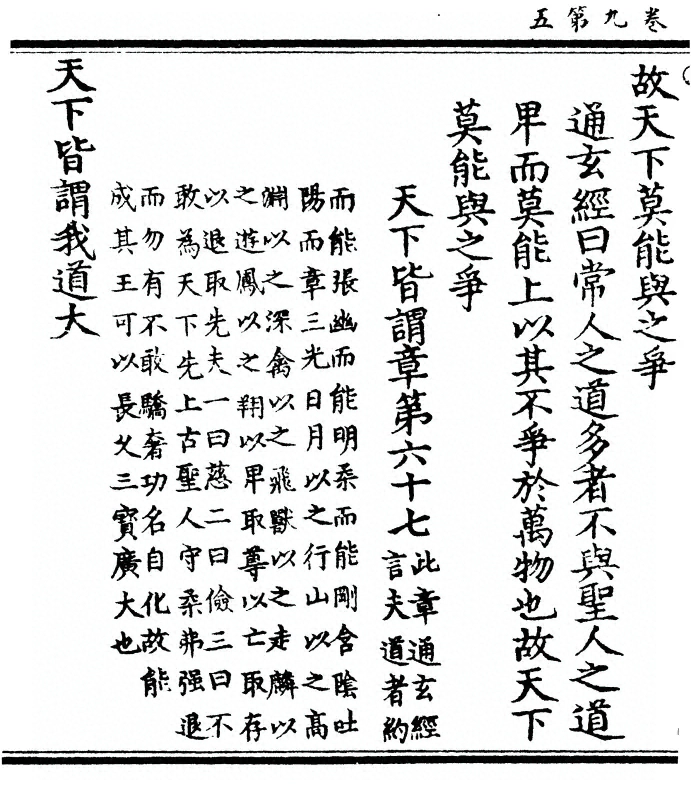 卷九第五
故天下莫能與之爭
通玄經曰常人之道多者不與聖人之道
卑而莫能上以其不爭於萬物也故天下
莫能與之爭
天下皆謂章第六十七
此章通玄經
言夫道者約
而能張幽而能明柔而能剛含陰吐
陽而章三光日月以之行山以之高
淵以之深禽以之飛獸以之走麟以
之遊鳳以之翔以卑取尊以亡取存
以退取先夫一曰慈二曰儉三曰不
敢為天下先上古聖人守柔弗强退
而勿有不敢驕奢功名自化故能
成其王可以長久三寶廣大也
天下皆謂我道大